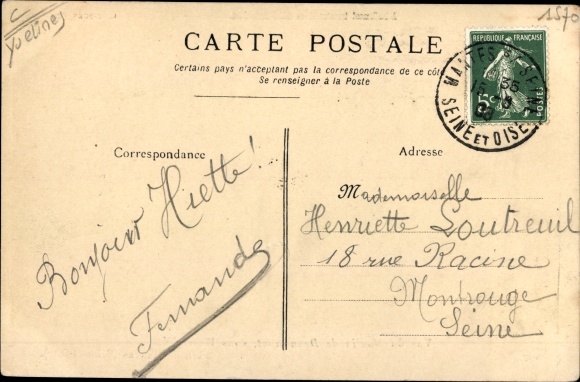 C
Yvelines
1570
CARTE POSTALE
Certains pays n'acceptent pas la correspondance de ce côté
Se renseigner à la Poste
REPUBLIQUE FRANÇAISE
5
MANTES S SEINE
SEINE ET OISE
Correspondance
Bonjour Hiette!
Fernande
Adresse
Mademoiselle
Henriette Loutreuil
18 rue Racine
Montrouge
Seine